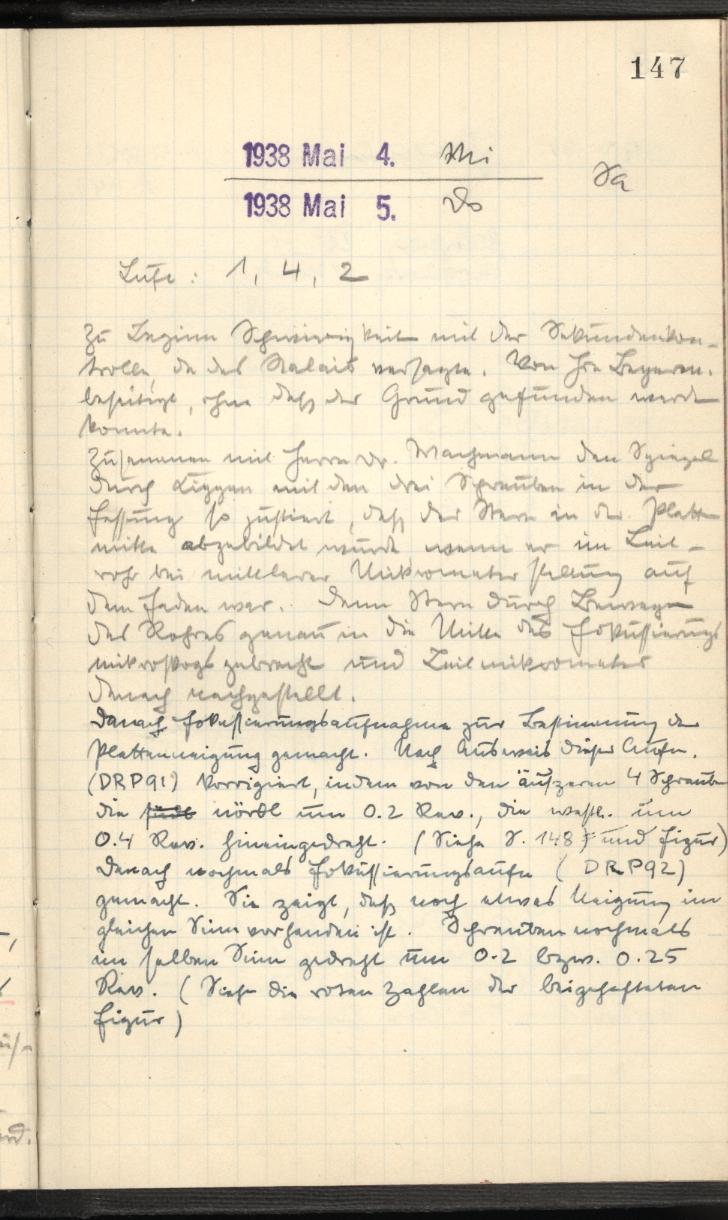 147
1938 Mai 4. Mi
Sa
1938 Mai 5. Do
Luft: 1, 4, 2
Zu Beginn Schwierigkeit mit der Sekundenkon-
trolle da das Relais versagte. Von Hrn
beseitigt, ohne daß der Grund gefunden werden
konnte.
Zusammen mit Herrn Dr. Wachmann den Spiegel
durch mit den drei Schrauben in der
Fassung so justiert, daß der Stern in der Platten
mitte abgebildet wurde wenn er im Leit-
rohr bei mittlerer Mikrometerstellung auf
dem Faden war. Dann Stern durch Bewegen
des Rohres genau in die Mitte des Fokussierungs
mikroskops gebracht und Leitmikrometer
danach nachgestellt.
Danach Fokussierungsaufnahme zur Bestimmung der
Plattenneigung gemacht. Nach Ausweis dieser Aufn.
(DRP91) korrigiert, indem von den äußeren 4 Schrauben
die nördl um 0.2 Rev., die westl. um
0.4 Rev. hineingedreht. (Siehe S. 148 und Figur)
Danach nochmals Fokussierungsaufn (DRP92)
gemacht. Sie zeigt, daß noch etwas Neigung im
gleichen Sinn vorhanden ist. Schrauben nochmals
im selben Sinn gedreht um 0.2 bzw. 0.25
Rev. (Siehe die roten Zahlen der beigehefteten
Figur)